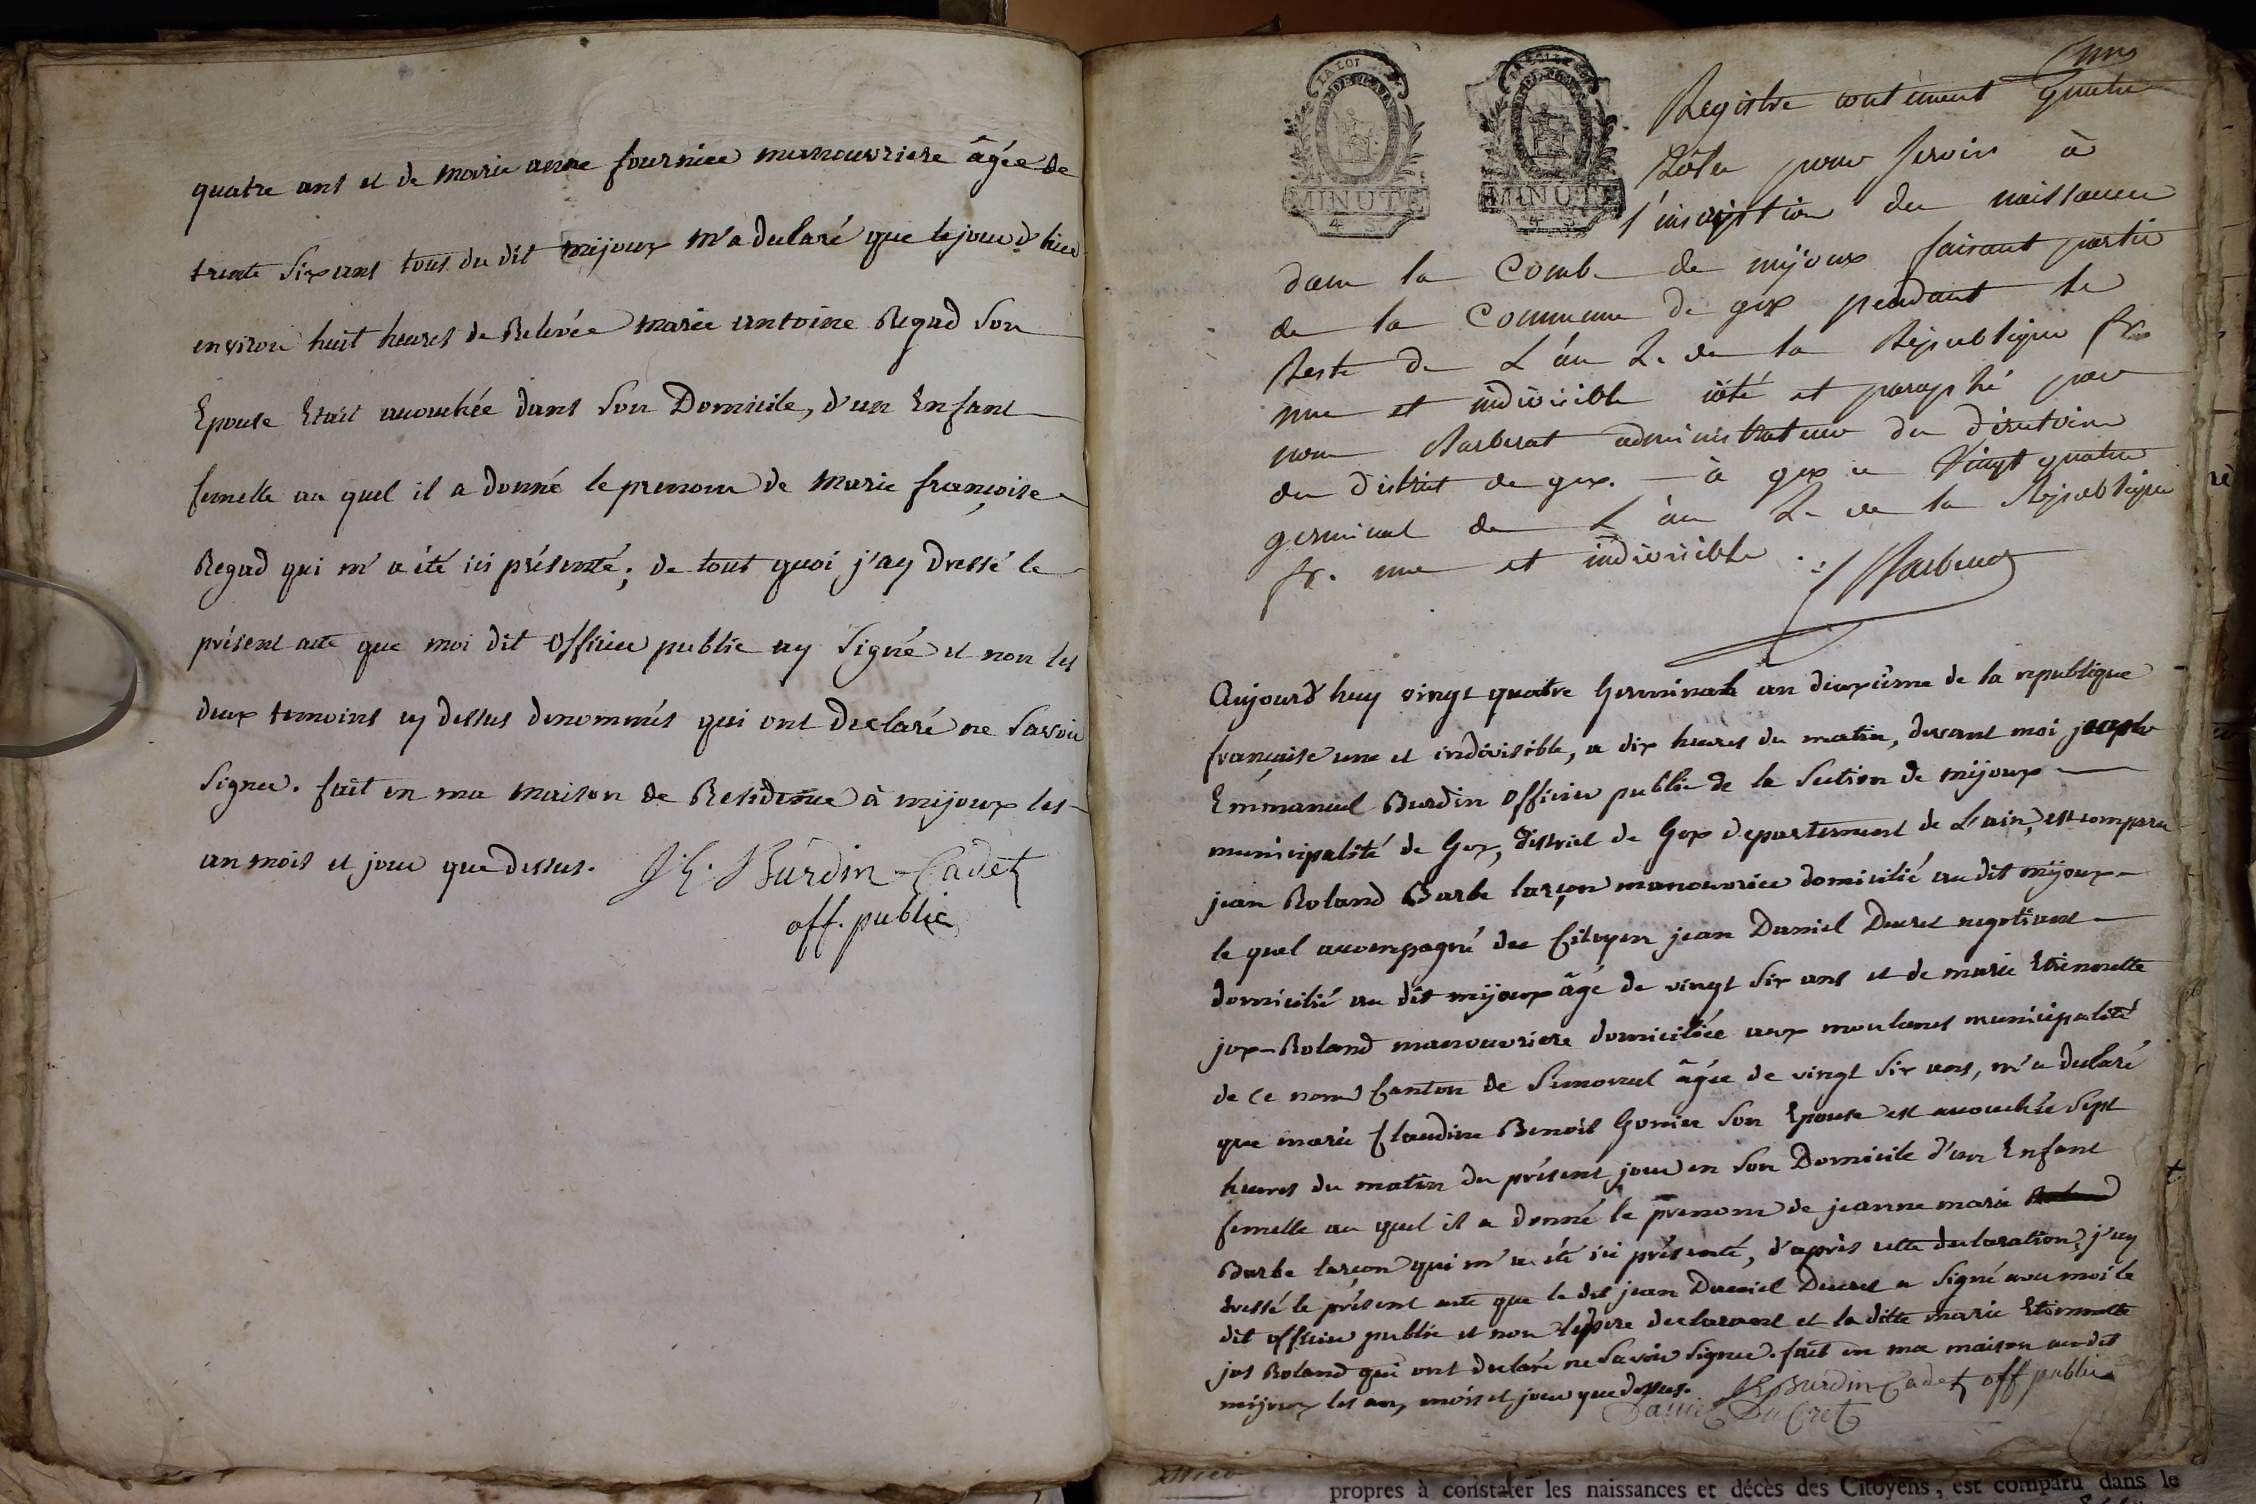 quatre ans et de marie anne fournier manouvriere âgée de
trente six ans tous du dit mijoux m'a declaré que le jour d'hier
environ huit heures de Relevée marie antoine Regad son
Epouse Etait accouchée dans son Domicile, d'un Enfant
femelle au quel il a donné le prenom de marie françoise
Regad qui m'a été ici présenté; de tout quoi j'ay Dressé le
présent acte que moi dit officier public ay signé et non les
deux temoins cy dessus denommés qui ont declaré ne savoir
signer. fait en ma maison de Residence à mijoux les
an mois et jour que dessus. J. E. Burdin-Cadet
off. public
un
LA LOI
MINUTE
4 S
MINUTE
4 S
Registre contenent quatre
Rôles pour servir à
l'inscription des naissances
dans la Combe de mijoux faisant partie
de la Commune de gex pendant le
Reste de L'an 2. de la République fr.
une et indivisible coté et paraphé par
nous Barberat administrateur du directoire
du district de gex. — à gex ce Vingt quatre
germinal de L'an 2. de la République
fr. une et indivisible ./. Barberat
Aujourd'huy vingt quatre Germinale an deuxième de la republique
française une et indivisible, a dix heures du matin, devant moi joseph
Emmanuel Burdin officier public de la Section de mijoux
municipalité de Gex, district de Gex departement de L'ain, est comparu
jean Roland Barbe larçon manouvrier domicilié au dit mijoux
le quel accompagné du Citoyen jean Daniel Ducret negotiant
domicilié au dit mijoux âgé de vingt six ans et de marie Etiennette
jox-Roland manouvriere domiciliée aux moulunes municipalité
de ce nom Canton de Simoncel âgée de vingt six ans, m'a declaré
que marie Claudine Benoit Gonier son Epouse est accouchée sept
heures du matin du présent jour en son Domicile d'un Enfant
femelle au quel il a donné le prenom de jeanne marie
Barbe larçon qui m'a été ici présenté, d'après cette declaration, j'ay
dressé le présent acte que le dit jean Daniel Ducret a signé avec moi le
dit officier public et non le pere declarant et la ditte marie Etiennette
jos Roland qui ont declaré ne savoir signer. fait en ma maison au dit
mijoux les an, mois et jour que dessus. J E Burdin Cadet off public
Daniel DuCret
propres à constater les naissances et décès des Citoyens, est comparu dans le